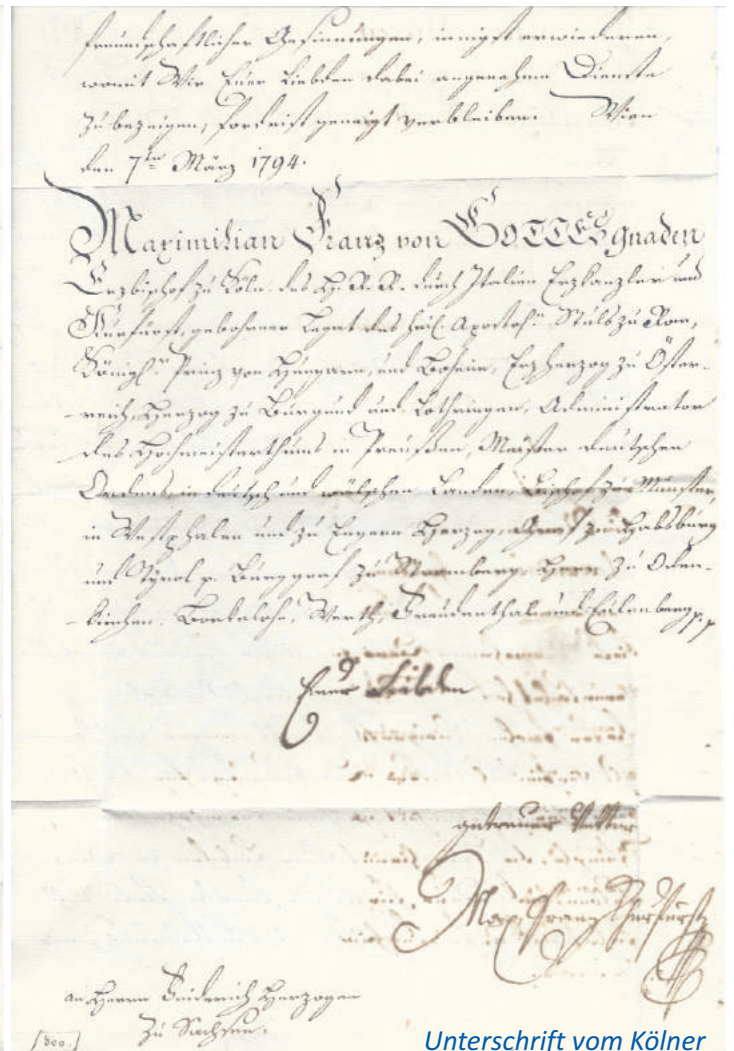 freundschaftlicher Gesinnungen, innigst erwiederen,
womit Wir Euer Liebden dabei angenehme Dienste
zu bezeigen, forderist geneigt verbleiben. Wien
den 7ten März 1794.
Maximilian Franz von GOTTES gnaden
Erzbischof zu Köln des H. R. R. durch Italien Erzkanzler und
Kurfürst, gebohrner Legat des heil. Apostol.n Stuls zu Rom,
Königl.r Prinz von Hungarn, und Boheim, Erzherzog zu Öster-
-reich, Herzog zu Burgund und Lothringen, Administrator
des Hochmeisterthums in Preußen, Meister deutschen
Ordens in deutsch und wälschen Landen, Bischof zu Münster,
in Westphalen und zu Engern Herzog, Graf zu Habsburg
und Tyrol p. Burggraf zu Stromberg, Herr zu Oden-
-kirchen, Borkelohe, Werth, Freudenthal und Eulenberg p. p
Euer Liebden
getreuer Vetter
Max Franz Churfürst
an Herrn Friderich Herzogen
zu Sachsen.
[300.]
Unterschrift vom Kölner